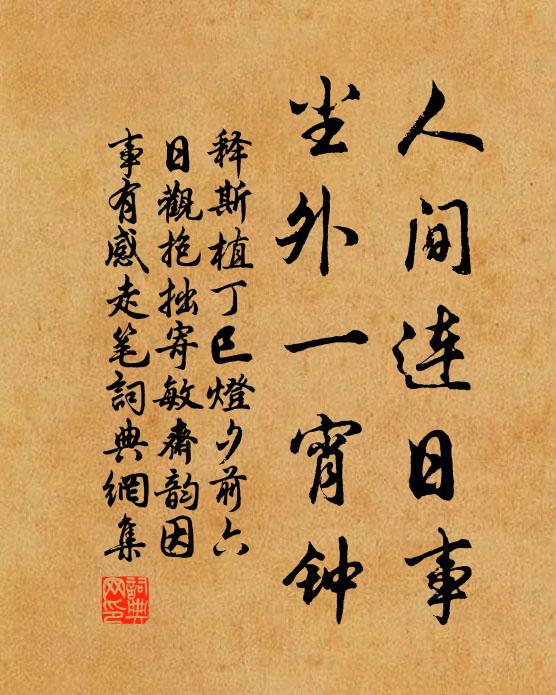 人间連日事
尘外一宵钟
释斯植丁巳燈夕前六
日觀抱拙寄敏齋韵因
事有感走笔詞典網集
詞典网印